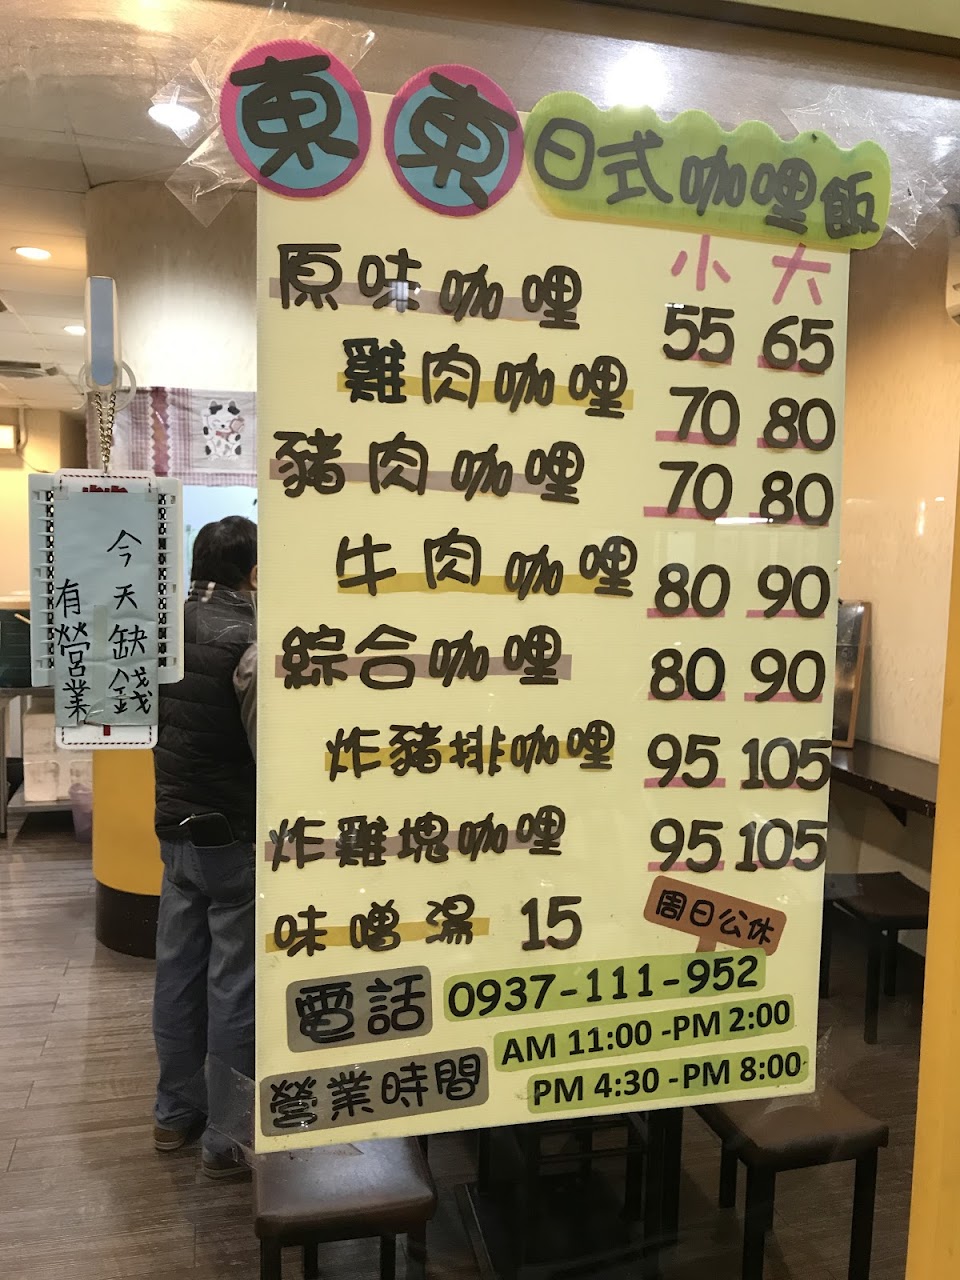 東東日式咖哩飯
小 大
原味咖哩 55 65
雞肉咖哩 70 80
豬肉咖哩 70 80
牛肉咖哩 80 90
綜合咖哩 80 90
炸豬排咖哩 95 105
炸雞塊咖哩 95 105
味噌湯 15
周日公休
電話 0937-111-952
營業時間 AM 11:00 -PM 2:00
PM 4:30 -PM 8:00
今天缺錢
有營業